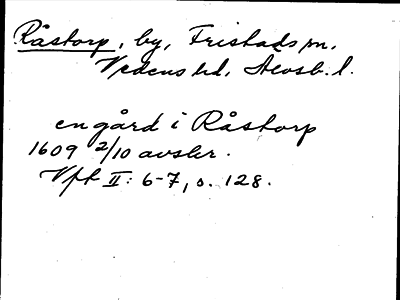 Råstorp, by, Fristads sn,
Vedens hd, Älvsb. l.
en gård i Råstorp
1609 2/10 avskr.
Vft II: 6-7, s. 128.